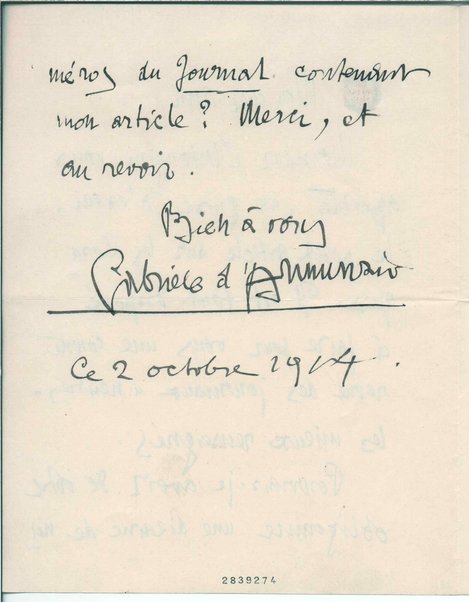 méros du Journal contenant
mon article? Merci, et
au revoir.
Bien à vous
Gabriele d'Annunzio
Ce 2 octobre 1914.
2839274